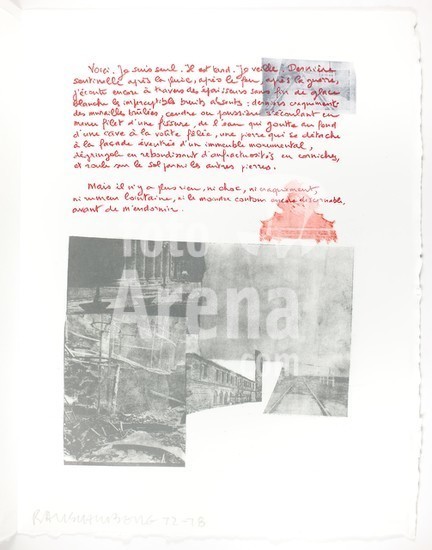 Voici. Je suis seul. Il est tard. Je veille. Dernière
sentinelle après la pluie, après le feu, après la guerre,
j'écoute encore à travers des épaisseurs sans fin de glace
blanche les imperceptibles bruits absents : derniers craquements
des murailles brûlées, cendre ou poussière s'écoulant en
menu filet d'une fissure, de l'eau qui goutte au fond
d'une cave à la voûte fêlée, une pierre qui se détache
à la façade éventrée d'un immeuble monumental,
dégringole en rebondissant d'anfractuosités en corniches,
et roule sur le sol parmi les autres pierres.
Mais il n'y a plus rien, ni choc, ni craquement,
ni rumeur lointaine, ni le moindre contour encore discernable,
avant de m'endormir.
foto
Arena
.com
RAUSCHENBERG 78